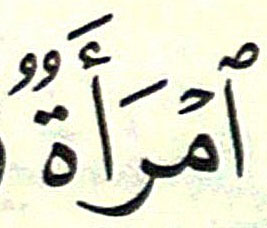 ٱمۡرَأَةٌ